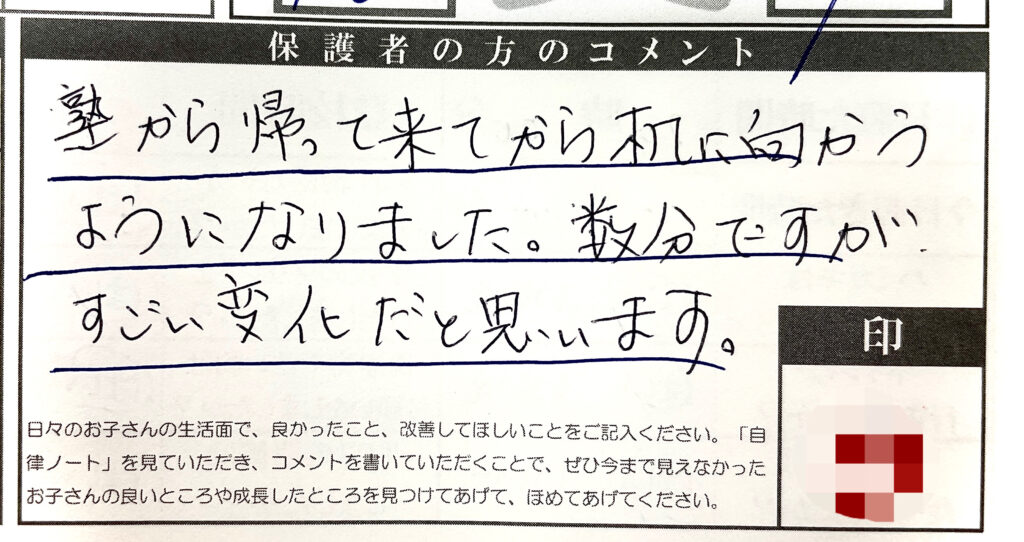 保護者の方のコメント
塾から帰って来てから机に向かう
ようになりました。数分ですが
すごい変化だと思います。
印
日々のお子さんの生活面で、良かったこと、改善してほしいことをご記入ください。「自
律ノート」を見ていただき、コメントを書いていただくことで、ぜひ今まで見えなかった
お子さんの良いところや成長したところを見つけてあげて、ほめてあげてください。